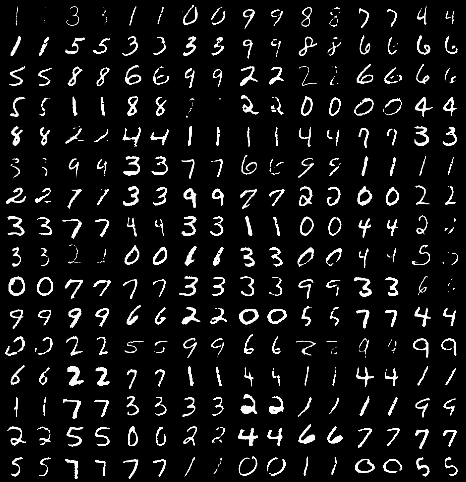 1 3 3 1 1 0 0 9 9 8 8 7 7 4 4
1 1 5 5 3 3 3 3 9 9 8 8 6 6 6 6
5 5 8 8 6 6 9 9 2 2 2 2 6 6 6 6
5 5 1 1 8 8 2 2 0 0 0 0 4 4
8 8 2 2 4 4 1 1 1 1 4 4 7 7 3 3
3 3 9 9 3 3 7 7 6 6 9 9 1 1 1 1
2 2 7 7 3 3 9 9 7 7 2 2 0 0 2 2
3 3 7 7 4 4 3 3 1 1 0 0 4 4 2
3 3 2 0 0 1 1 3 3 0 0 4 4 5
0 0 7 7 7 7 3 3 3 3 9 9 3 3 6 6
9 9 9 9 6 6 2 2 0 0 5 5 7 7 4 4
0 0 2 2 5 5 9 9 6 6 9 9 9 9
6 6 2 2 7 7 1 1 4 4 1 1 4 4 1 1
1 1 7 7 3 3 3 3 2 2 1 1 1 1 9 9
2 2 5 5 0 0 2 2 4 4 6 6 7 7 7 7
5 5 7 7 7 7 1 1 0 0 1 1 0 0 5 5